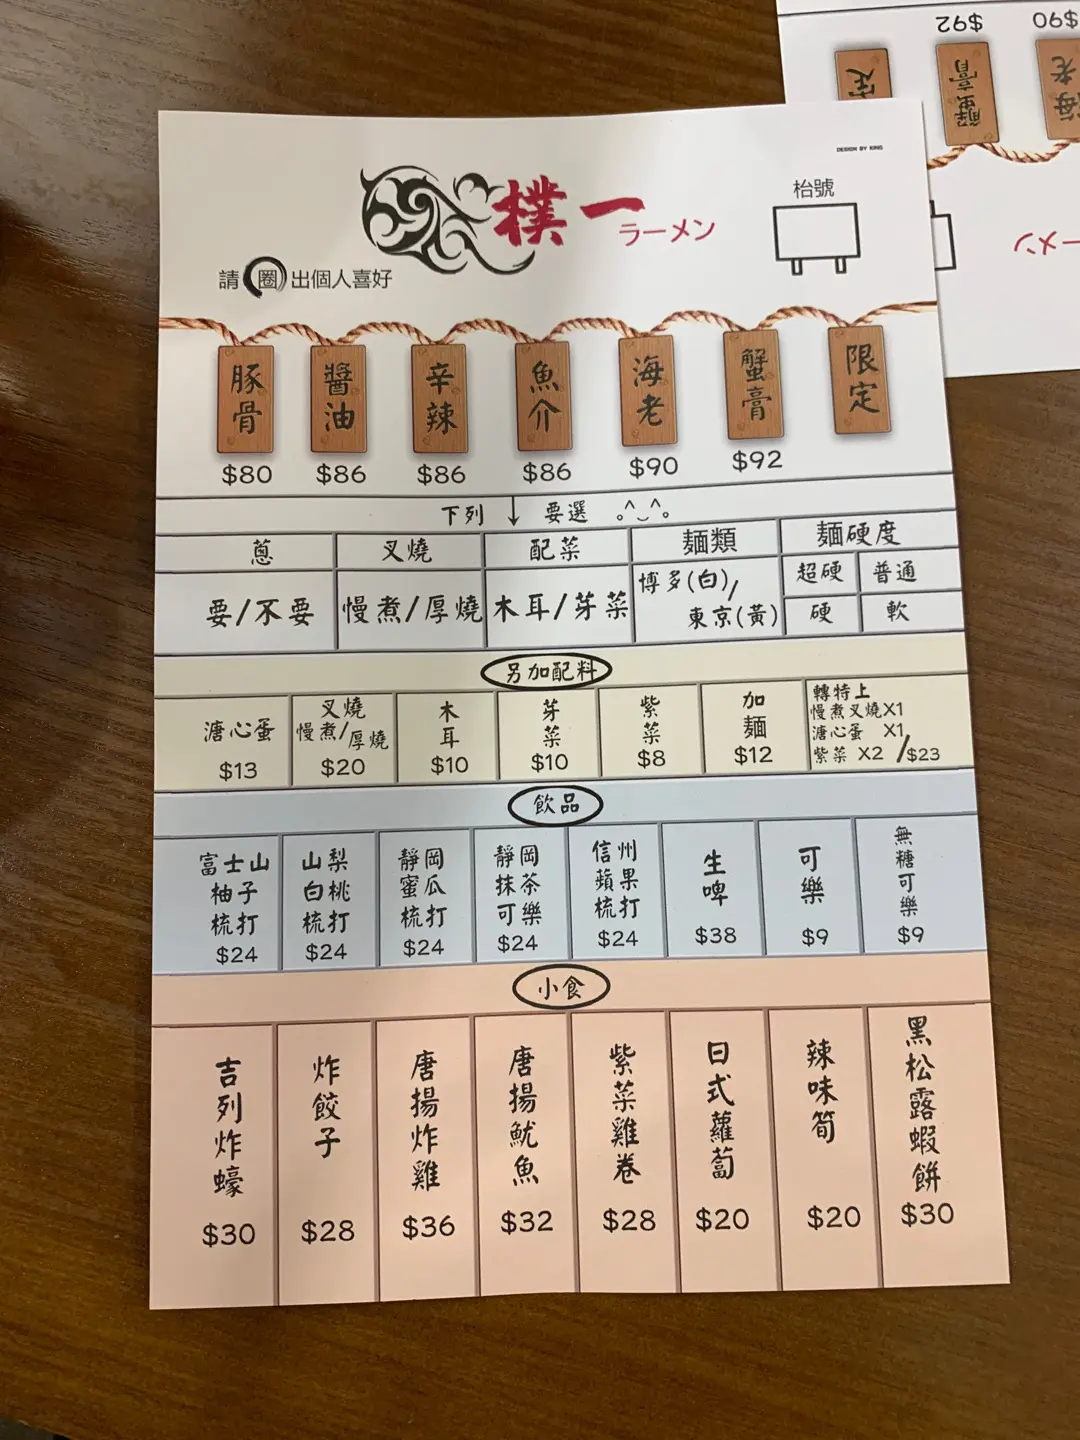 DESIGN BY KING
樸一
ラーメン
枱號
請圈出個人喜好
豚骨 醬油 辛辣 魚介 海老 蟹膏 限定
$80 $86 $86 $86 $90 $92
下列↓要選 。^‿^。
蔥 叉燒 配菜 麵類 麵硬度
要/不要 慢煮/厚燒 木耳/芽菜
博多(白)/
東京(黃)
超硬 普通
硬 軟
另加配料
溏心蛋
$13
叉燒
慢煮/厚燒
$20
木耳
$10
芽菜
$10
紫菜
$8
加麵
$12
轉特上
慢煮叉燒X1
溏心蛋 X1
紫菜 X2 /$23
飲品
富士山
柚子
梳打
$24
山梨
白桃
梳打
$24
靜岡
蜜瓜
梳打
$24
靜岡
抹茶
可樂
$24
信州
蘋果
梳打
$24
生啤
$38
可樂
$9
無糖可樂
$9
小食
吉列炸蠔
$30
炸餃子
$28
唐揚炸雞
$36
唐揚魷魚
$32
紫菜雞卷
$28
日式蘿蔔
$20
辣味筍
$20
黑松露蝦餅
$30
$92
$90
蟹膏
海老
定
ーメン